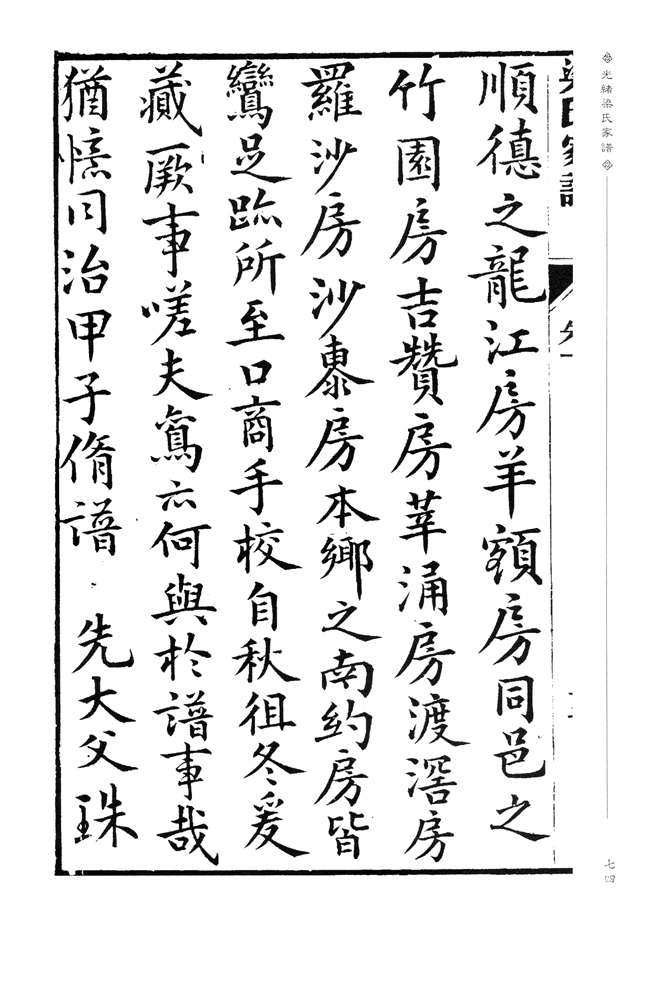 光緒梁氏家譜
七四
梁氏家譜
順德之龍江房羊額房同邑之
竹園房吉贊房莘涌房渡滘房
羅沙房沙亭房本鄉之南約房皆
鸞足跡所至口商手校自秋徂冬爰
藏厥事嗟夫鸞亦何與於譜事哉
猶憶同治甲子脩譜 先大父珠